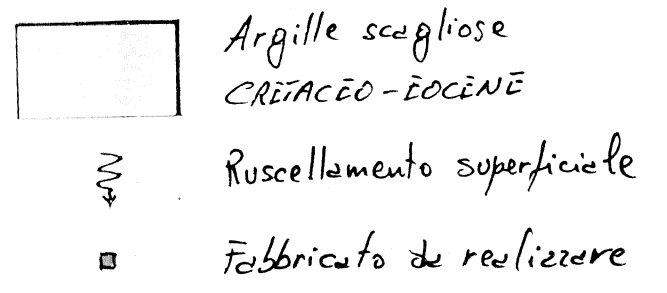 Argille scagliose
CRETACEO-EOCENE
Ruscellamento superficiale
Fabbricato da realizzare